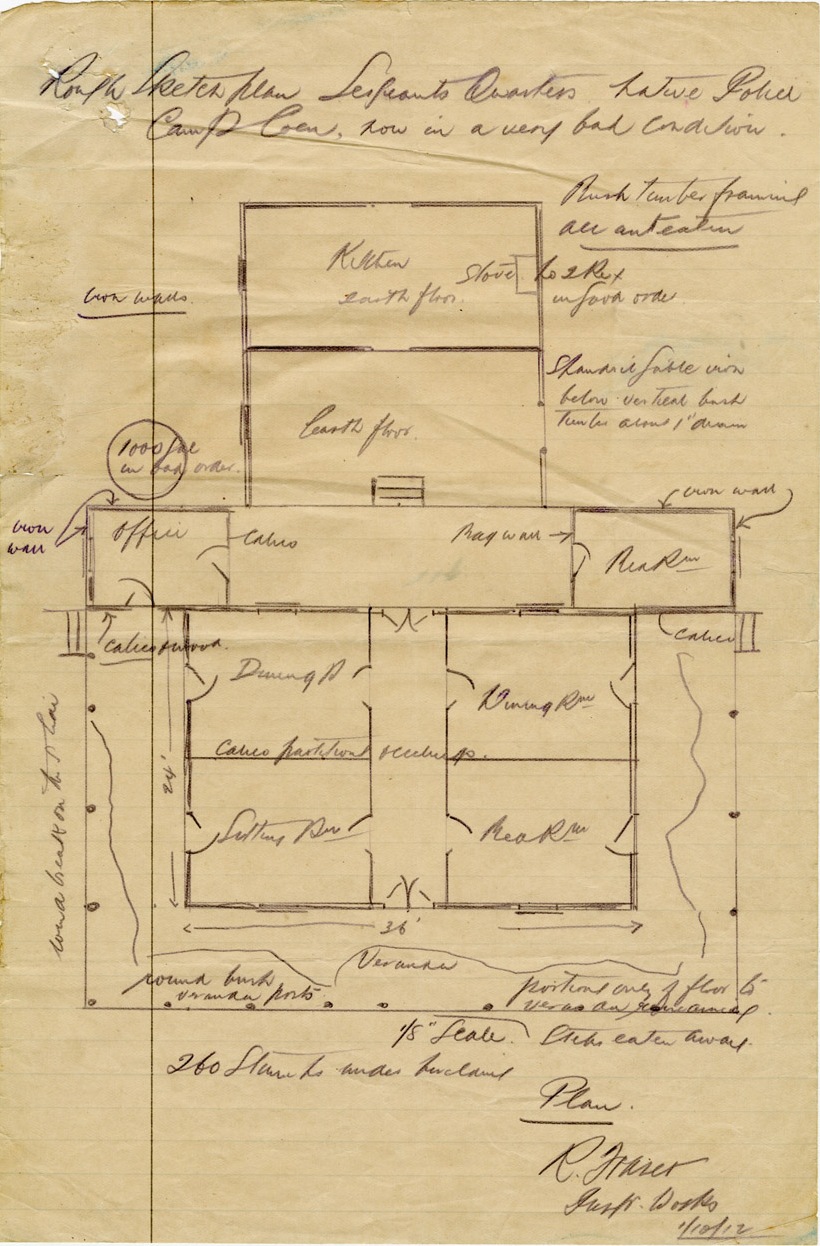 Rough Sketch plan Sergeants Quarters Native Police
Camp Coen, now in a very bad condition.
Bush timber framing
all ant eaten
Kitchen
earth floor.
Stove
No 2 Rex
in good order
iron walls
Standard gable iron
below vertical bush
timber about 1" diam
earth floor.
1000 gal
in bad order.
iron wall
iron
wall
Office
Calico
Bag wall
Bed Rm
Calico & wood.
Calico
Dining R
Dining Rm
Calico partitions & ceilings.
24'
Sitting Rm
Bed Rm
wind break on this
36'
Veranda
round bush
veranda posts
portions only of floor to
verandah remaining
1/8" Scale.
Steps eaten away.
260 Stumps under building
Plan.
R. Fraser
Inspr. Works
1/10/12